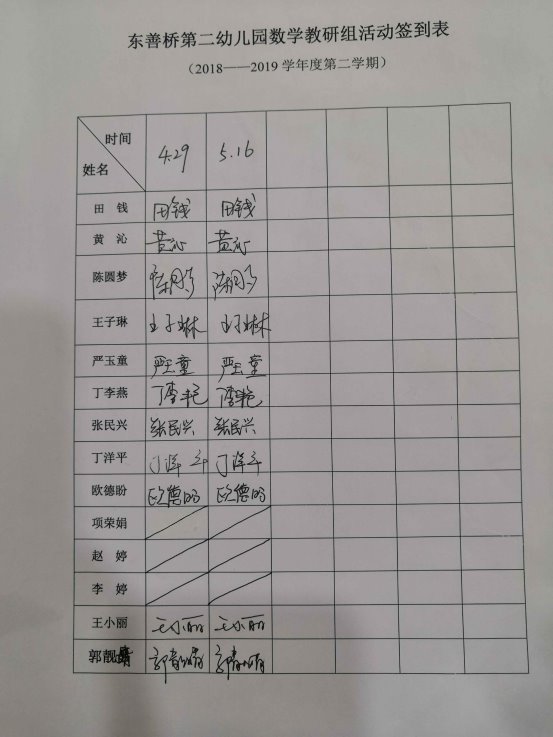 东善桥第二幼儿园数学教研组活动签到表
（2018——2019 学年度第二学期）
时间
姓名
4.29 5.16
田 钱 田钱 田钱
黄 沁 黄沁 黄沁
陈圆梦 陈圆梦 陈圆梦
王子琳 王子琳 王子琳
严玉童 严玉童 严玉童
丁李燕 丁李艳 丁李艳
张民兴 张民兴 张民兴
丁洋平 丁洋平 丁洋平
欧德盼 欧德盼 欧德盼
项荣娟
赵 婷
李 婷
王小丽 王小丽 王小丽
郭靓